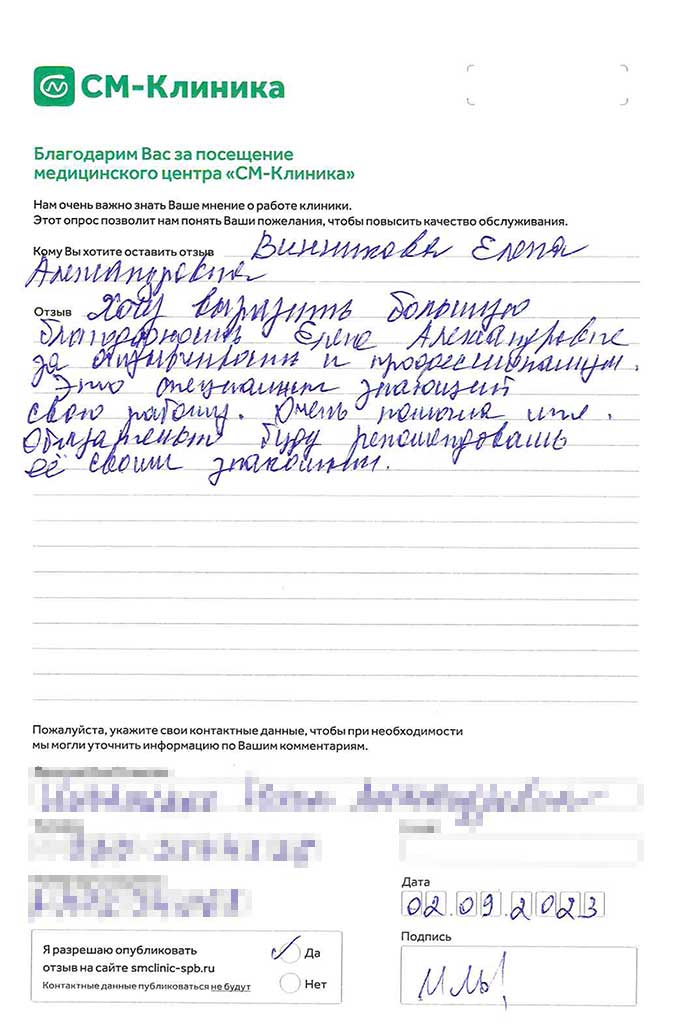 СМ-Клиника
Благодарим Вас за посещение
медицинского центра «СМ-Клиника»
Нам очень важно знать Ваше мнение о работе клиники.
Этот опрос позволит нам понять Ваши пожелания, чтобы повысить качество обслуживания.
Кому Вы хотите оставить отзыв Винникова Елена
Александровна
Отзыв Хочу выразить большую
благодарность Елене Александровне
за отзывчивость и профессионализм.
Это специалист знающий
свою работу. Очень помогла мне.
Обязательно буду рекомендовать
её своим знакомым.
Пожалуйста, укажите свои контактные данные, чтобы при необходимости
мы могли уточнить информацию по Вашим комментариям.
Дата
02.09.2023
Я разрешаю опубликовать
отзыв на сайте smclinic-spb.ru
Контактные данные публиковаться не будут
Да
Нет
Подпись